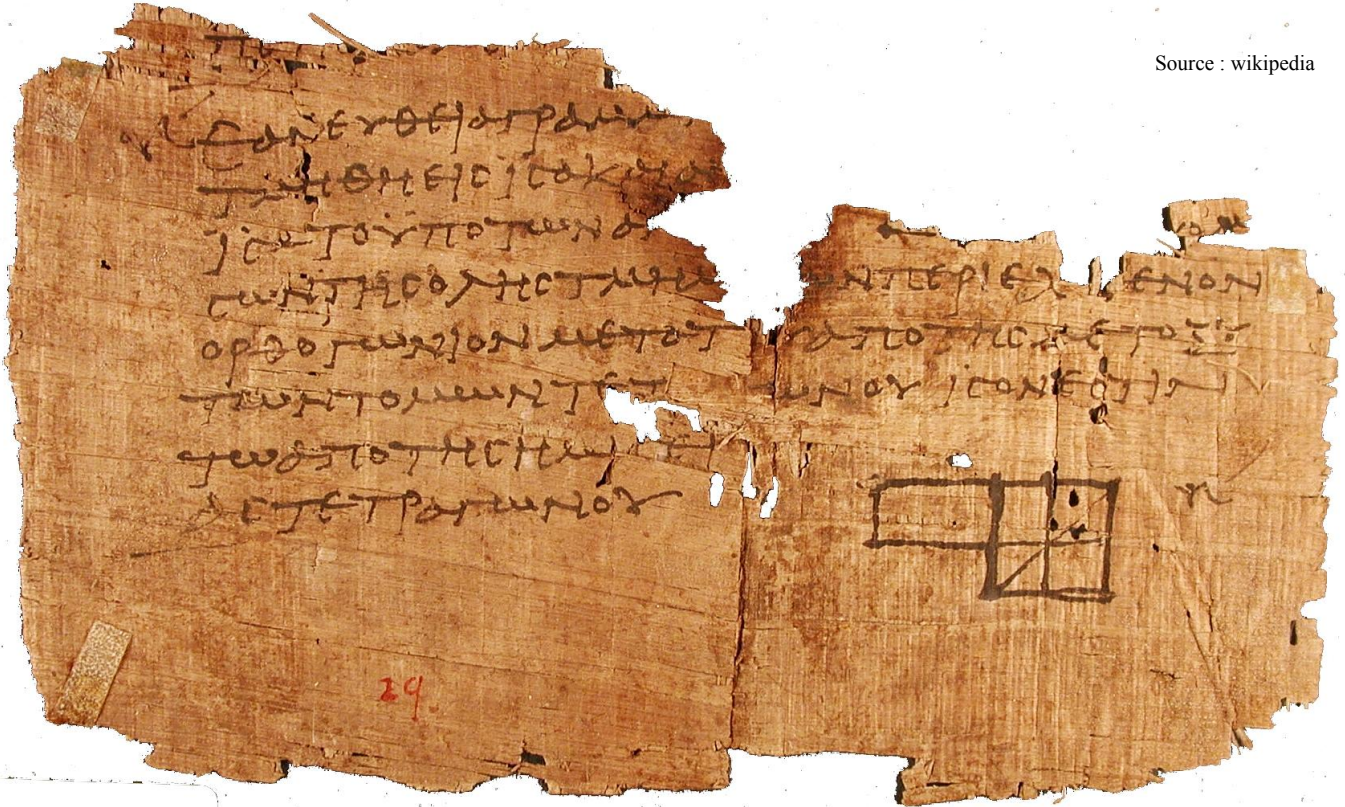 Source : wikipedia
ΕΑΝ ΕΥΘΕΙΑ ΓΡΑΜΜ
ΤΜΗΘΗ ΕΙϹ ΙϹΑ Κ
ΙϹΑ ΤΟ ΥΠΟ ΤΩΝ Α
ϹΩΝ ΤΗϹ ΟΛΗϹ ΤΜΗΜ ΩΝ ΠΕΡΙΕΧ ΜΕΝΟΝ
ΟΡΘΟΓΩΝΙΟΝ ΜΕΤΑ ΤΟΥ ΑΠΟ ΤΗϹ ΜΕΤΟΞΥ
ΤΩΝ ΤΟΜΩΝ ΤΕΤ ΩΝΟΥ ΙϹΟΝ ΕϹΤΙΝ
ΤΩ ΑΠΟ ΤΗϹ ΗΜΙϹΕΙ
ΑϹ ΤΕΤΡΑΓΩΝΟΥ
29.